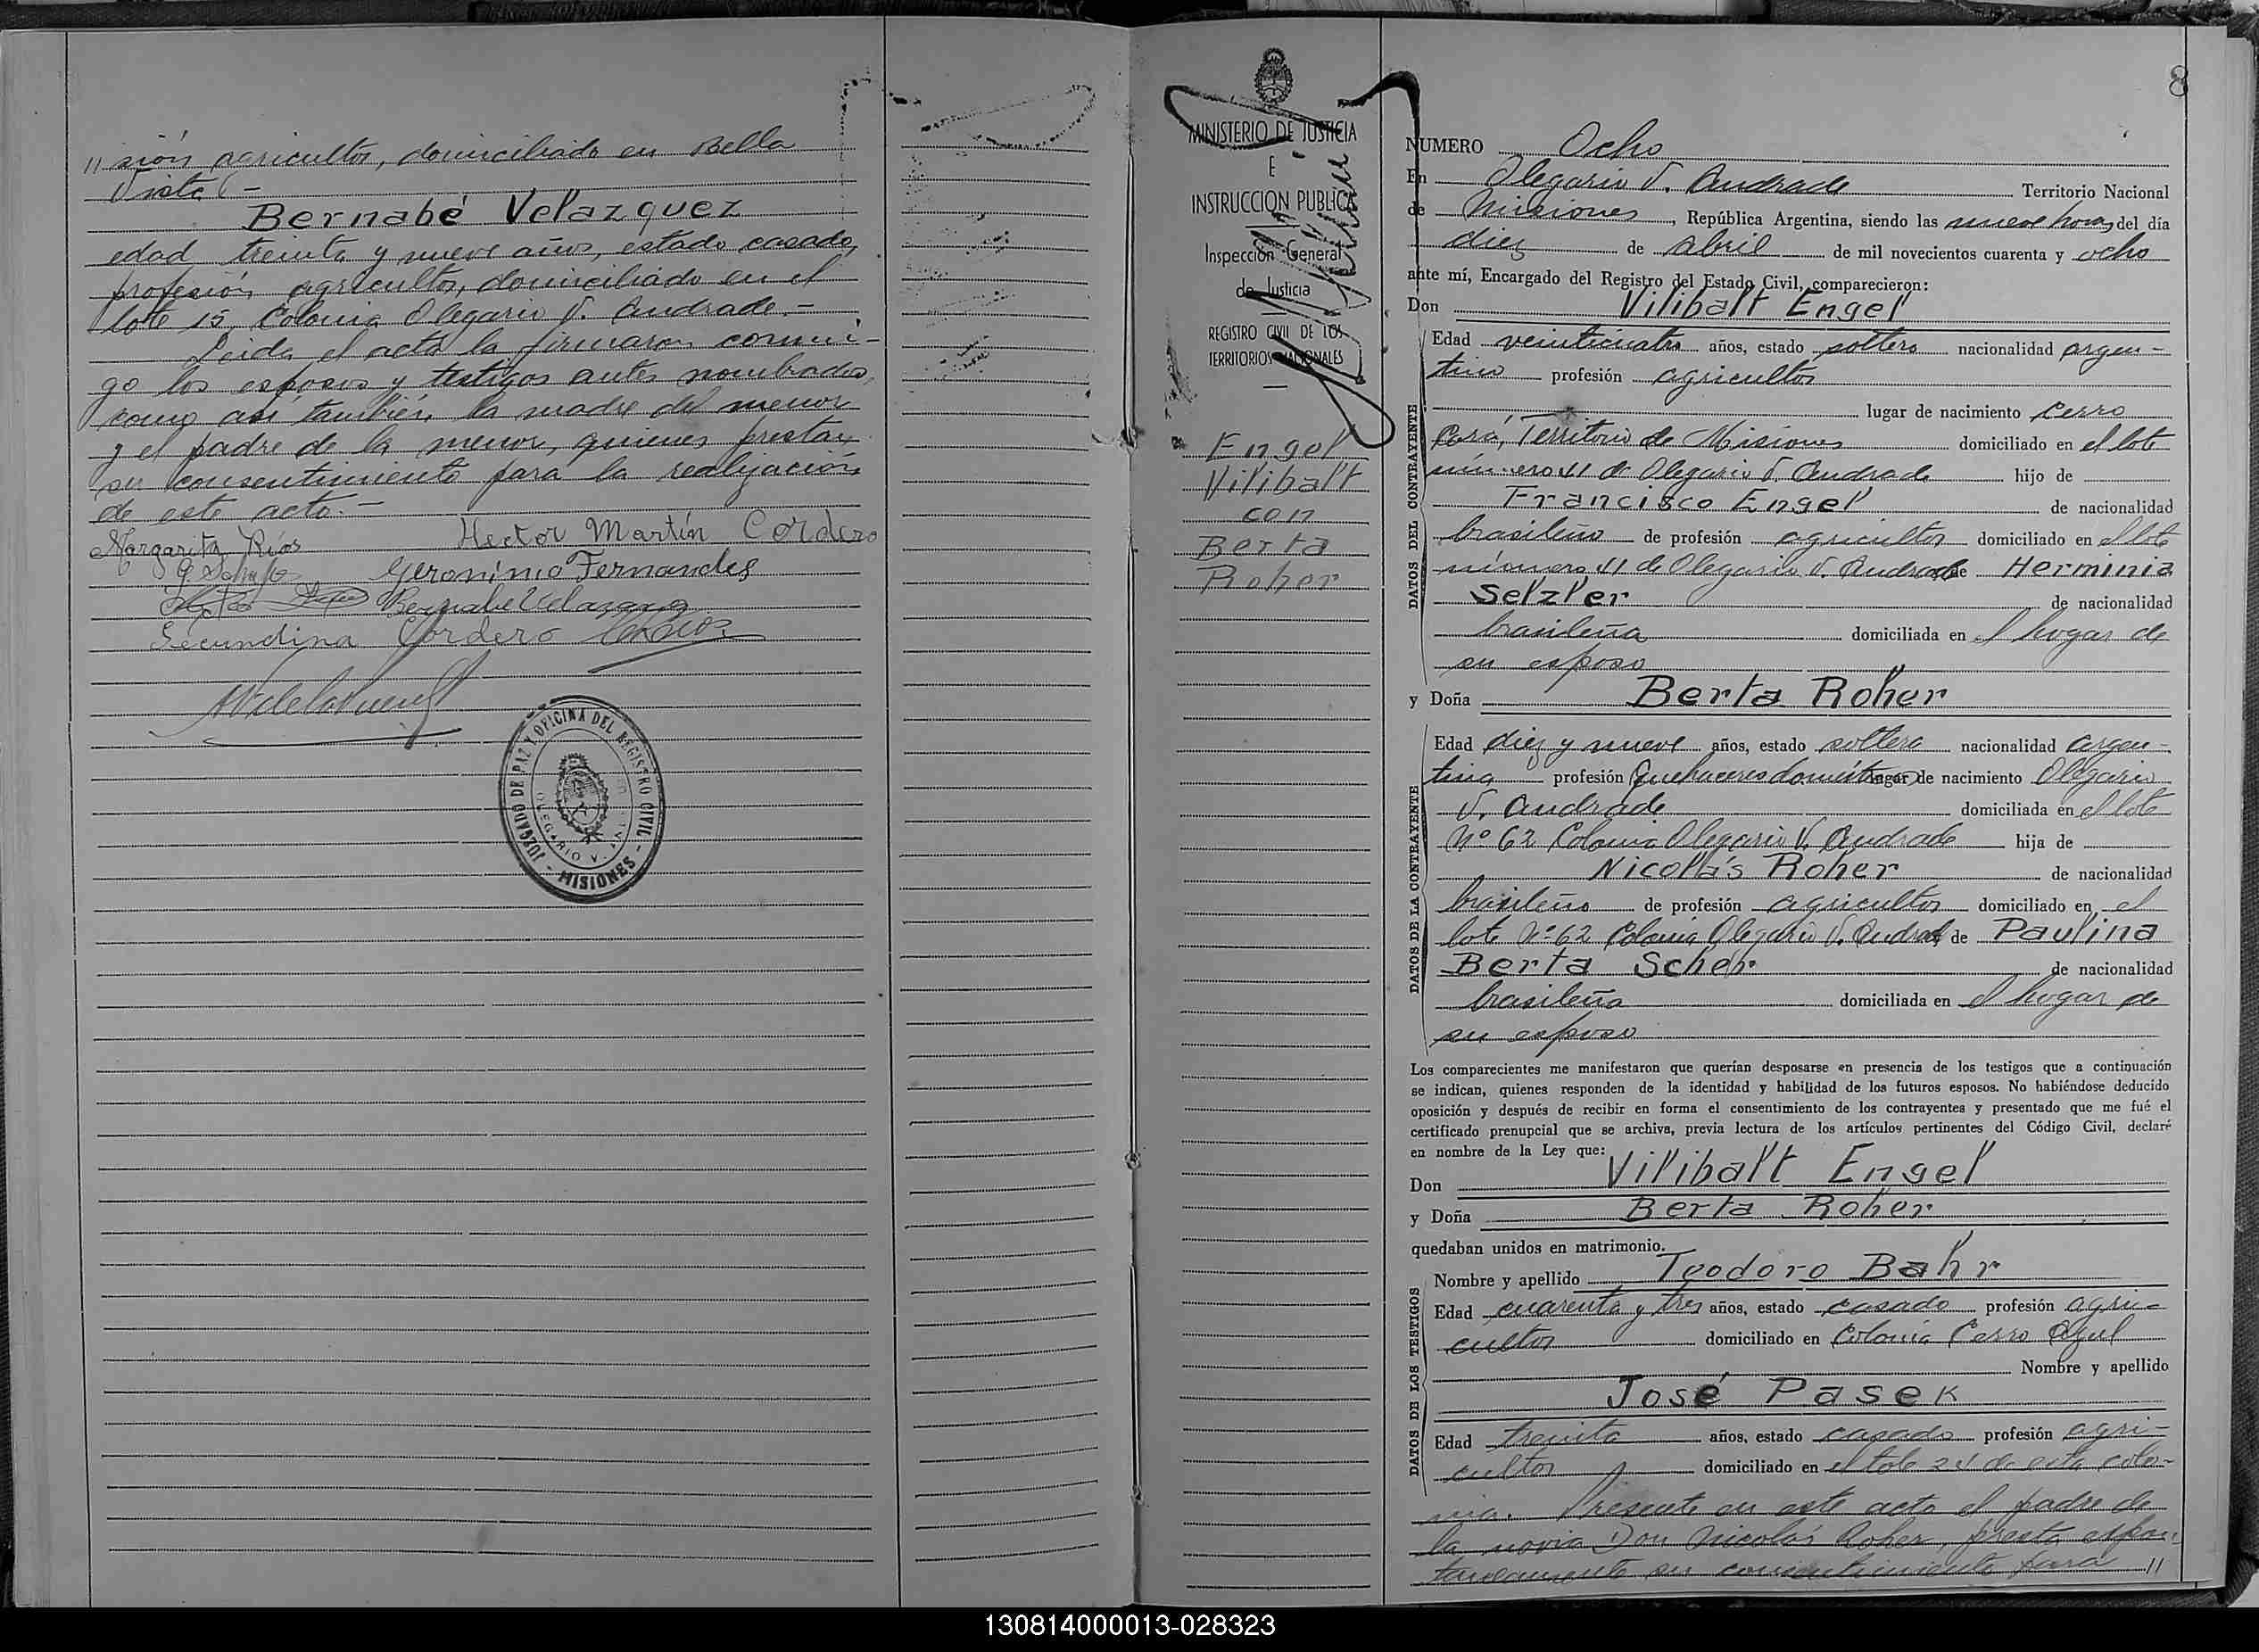 " sión agricultor, domiciliado en Bella
Vista -
Bernabé Velazquez
edad treinta y nueve años, estado casado,
profesión agricultor, domiciliado en el
lote 15, Colonia Olegario V. Andrade.-
Leida el acta la firmaron conmi-
go los esposos y testigos antes nombrados,
como asi también la madre del menor
y el padre de la menor, quienes prestan
su consentimiento para la realización
de este acto.-
Margarita Ríos Hector Martín Cordero
Geronimo Fernandes
Bernabe Velazquez
Secundina Cordero
JUZGADO DE PAZ Y OFICINA DEL REGISTRO CIVIL
OLEGARIO V. ANDRADE
- MISIONES -
MINISTERIO DE JUSTICIA
E
INSTRUCCION PUBLICA
Inspección General
de Justicia
REGISTRO CIVIL DE LOS
TERRITORIOS NACIONALES
Engel
Vilibalt
con
Berta
Roher
8
NUMERO Ocho
En Olegario V. Andrade Territorio Nacional
de Misiones, República Argentina, siendo las nueve horas del día
diez de abril de mil novecientos cuarenta y ocho
ante mí, Encargado del Registro del Estado Civil, comparecieron:
Don Vilibalt Engel
DATOS DEL CONTRAYENTE
Edad veinticuatro años, estado soltero nacionalidad argen-
tino profesión agricultor
lugar de nacimiento Cerro
Corá, Territorio de Misiones domiciliado en el lote
número 41 de Olegario V. Andrade hijo de
Francisco Engel de nacionalidad
brasileño de profesión agricultor domiciliado en el lote
número 41 de Olegario V. Andrade de Herminia
Selzler de nacionalidad
brasileña domiciliada en el hogar de
su esposo
y Doña Berta Roher
DATOS DE LA CONTRAYENTE
Edad diez y nueve años, estado soltera nacionalidad argen-
tina profesión quehaceres domésticos lugar de nacimiento Olegario
V. Andrade domiciliada en el lote
Nº 62 Colonia Olegario V. Andrade hija de
Nicolás Roher de nacionalidad
brasileño de profesión agricultor domiciliado en el
lote Nº 62 Colonia Olegario V. Andrade de Paulina
Berta Scher de nacionalidad
brasileña domiciliada en el hogar de
su esposo
Los comparecientes me manifestaron que querían desposarse en presencia de los testigos que a continuación
se indican, quienes responden de la identidad y habilidad de los futuros esposos. No habiéndose deducido
oposición y después de recibir en forma el consentimiento de los contrayentes y presentado que me fué el
certificado prenupcial que se archiva, previa lectura de los artículos pertinentes del Código Civil, declaré
en nombre de la Ley que:
Don Vilibalt Engel
y Doña Berta Roher
quedaban unidos en matrimonio.
DATOS DE LOS TESTIGOS
Nombre y apellido Teodoro Bahr
Edad cuarenta y tres años, estado casado profesión agri-
cultor domiciliado en Colonia Cerro Azul
Nombre y apellido
José Pasek
Edad treinta años, estado casado profesión agri-
cultor domiciliado en el lote 24 de esta colo-
nia. Presente en este acto el padre de
la novia Don Nicolás Roher, presta espon-
taneamente su consentimiento para "
130814000013-028323